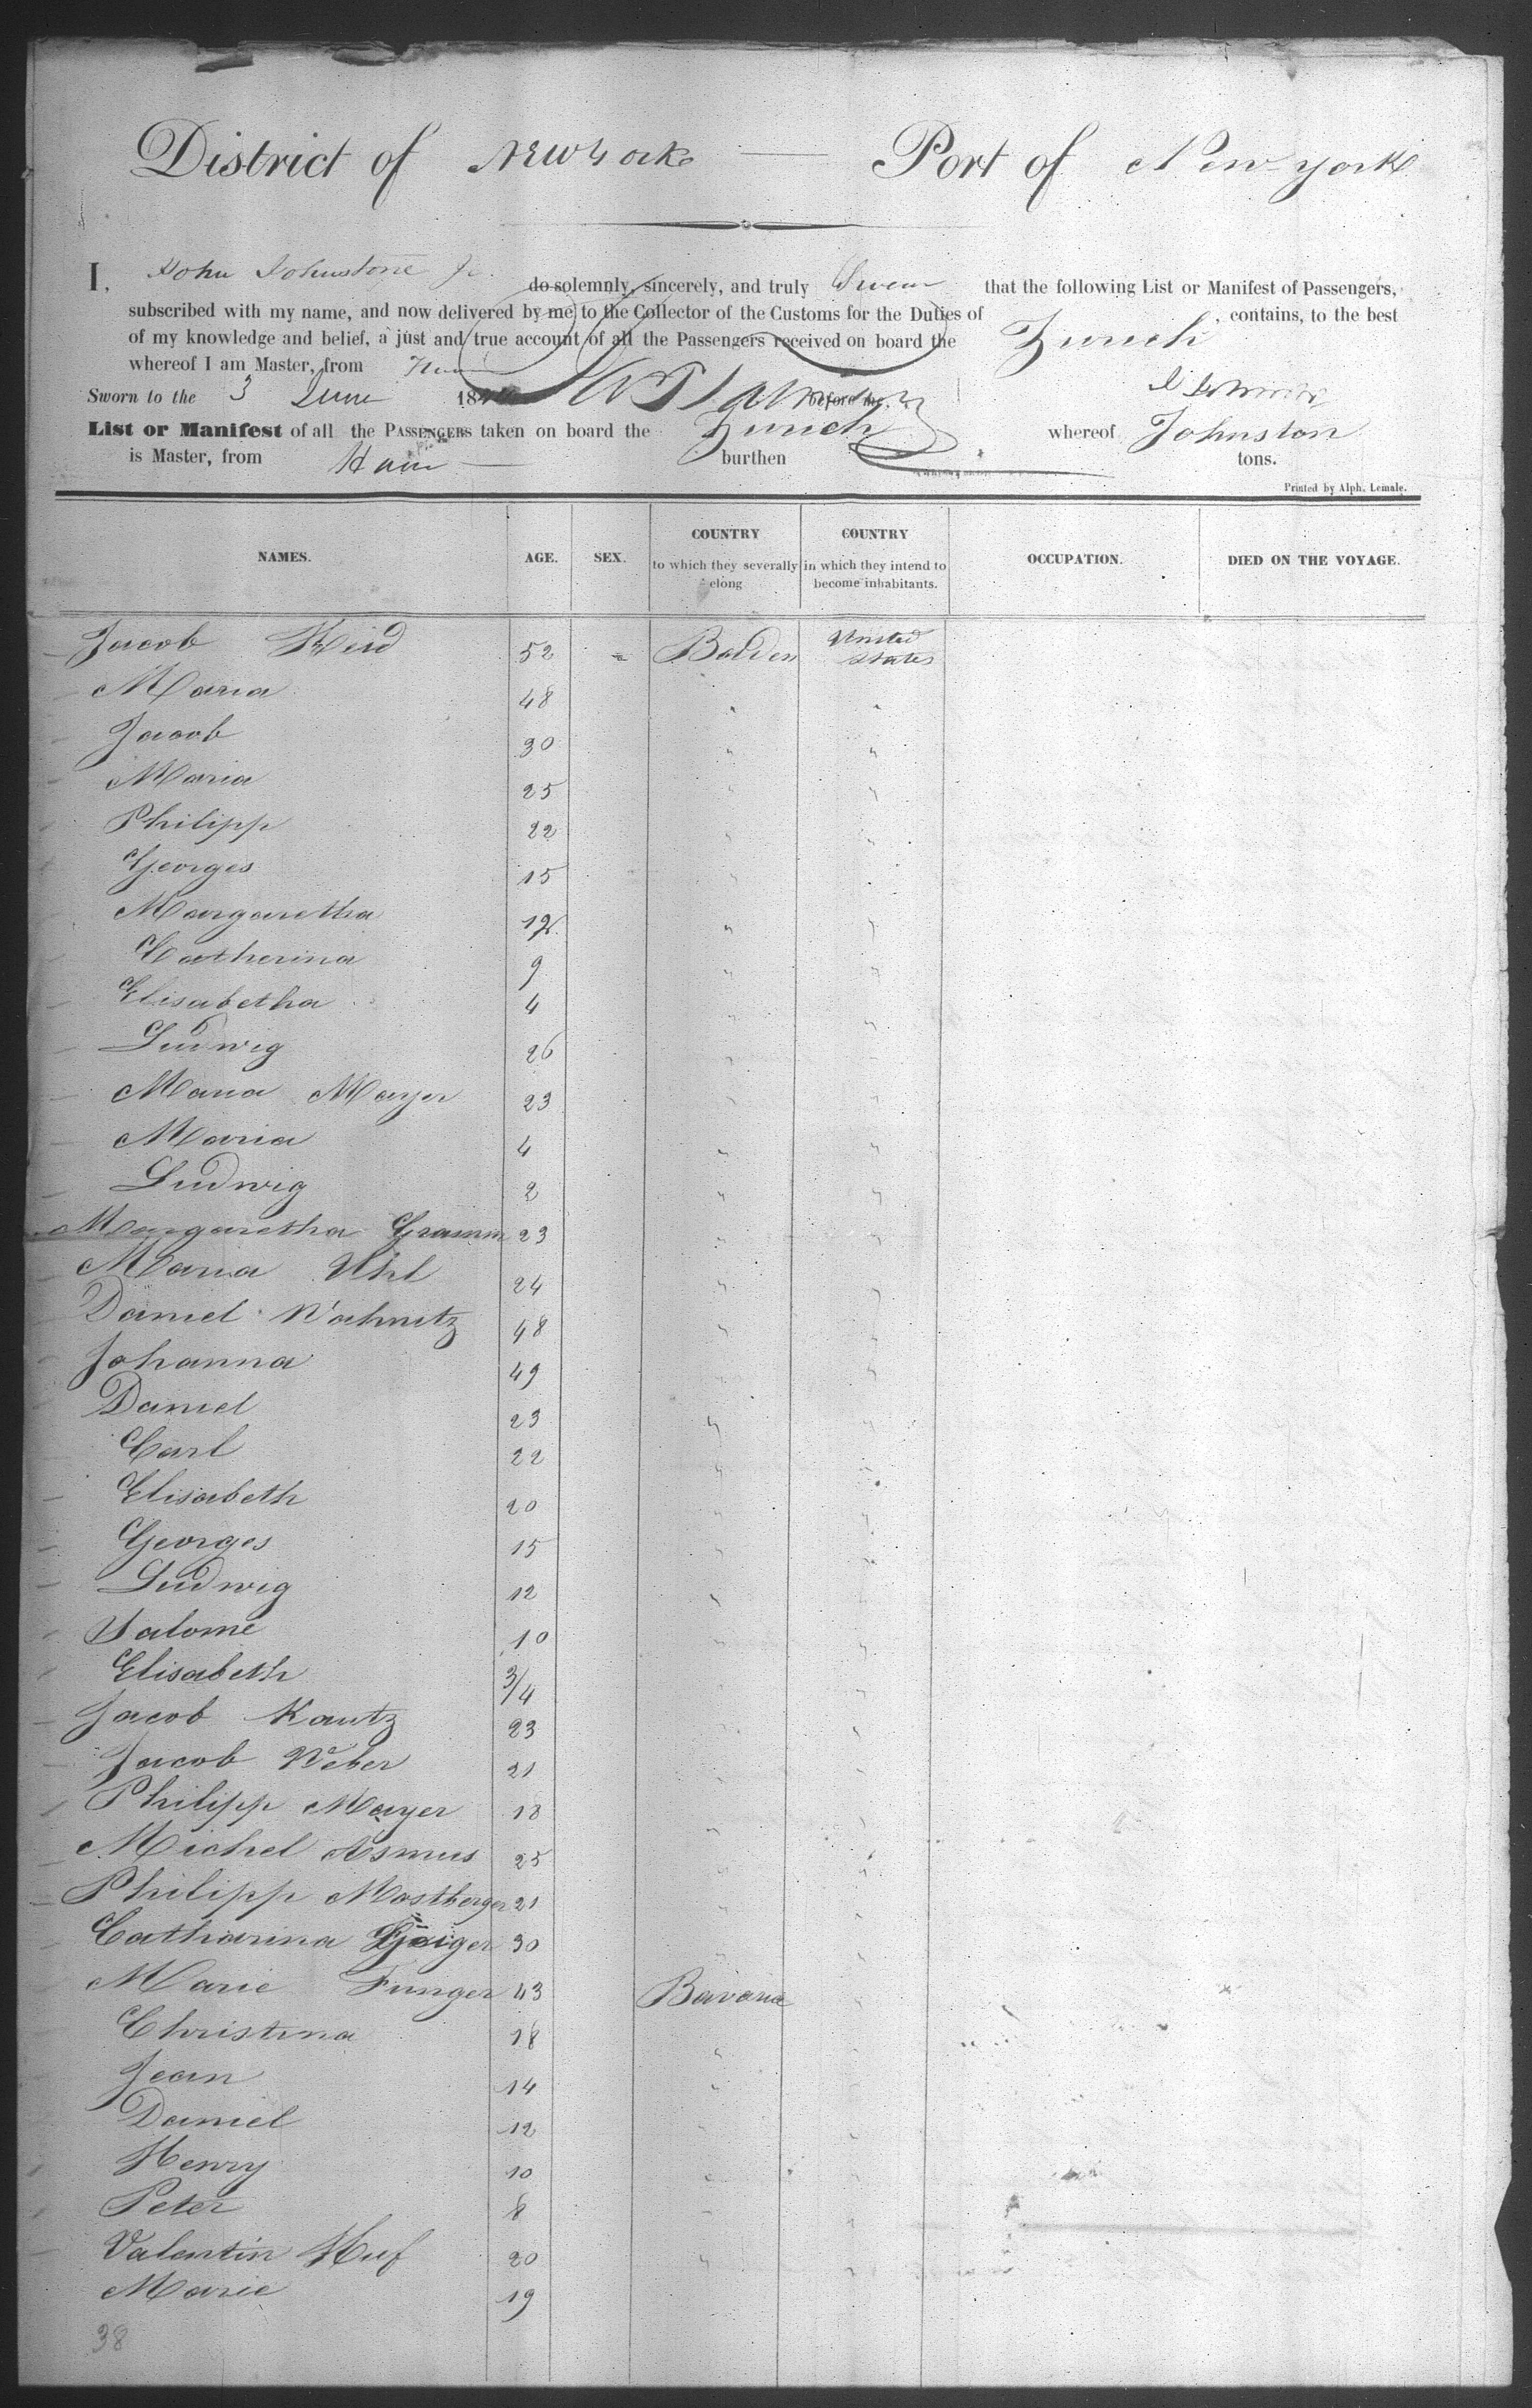 District of New York — Port of New York
I, John Johnstone Jr. do solemnly, sincerely, and truly Swear that the following List or Manifest of Passengers,
subscribed with my name, and now delivered by me to the Collector of the Customs for the Duties of , contains, to the best
of my knowledge and belief, a just and true account of all the Passengers received on board the Zurich
whereof I am Master, from
Sworn to the 3 June 18 before me.
List or Manifest of all the PASSENGERS taken on board the Zurich whereof Johnston
is Master, from Havre burthen tons.
Printed by Alph. Lemale.
NAMES. AGE. SEX. COUNTRY to which they severally elong COUNTRY in which they intend to become inhabitants. OCCUPATION. DIED ON THE VOYAGE.
Jacob 52 " Baden United States
Maria 48 " "
Jacob 30 " "
Maria 25 " "
Philipp 22 " "
Georges 15 " "
Margaretha 12 " "
Catherina 9 " "
Elisabetha 4 " "
Ludwig 26 " "
Maria Mayer 23 " "
Maria 4 " "
Ludwig 2 " "
Margaretha Gramm 23 " "
Maria Uhl 24 " "
Daniel Wahnitz 48 " "
Johanna 49 " "
Daniel 23 " "
Carl 22 " "
Elisabeth 20 " "
Georges 15 " "
Ludwig 12 " "
Salome 10 " "
Elisabeth 3/4 " "
Jacob Kautz 23 " "
Jacob Weber 21 " "
Philipp Mayer 18 " "
Michel Asmus 25 " "
Philipp Mostberger 21 " "
Catharina Geiger 30 " "
Marie Funger 43 Bavaria "
Christina 18 " "
Jean 14 " "
Daniel 12 " "
Henry 10 " "
Peter 8 " "
Valentin Huf 20 " "
Marie 19
38